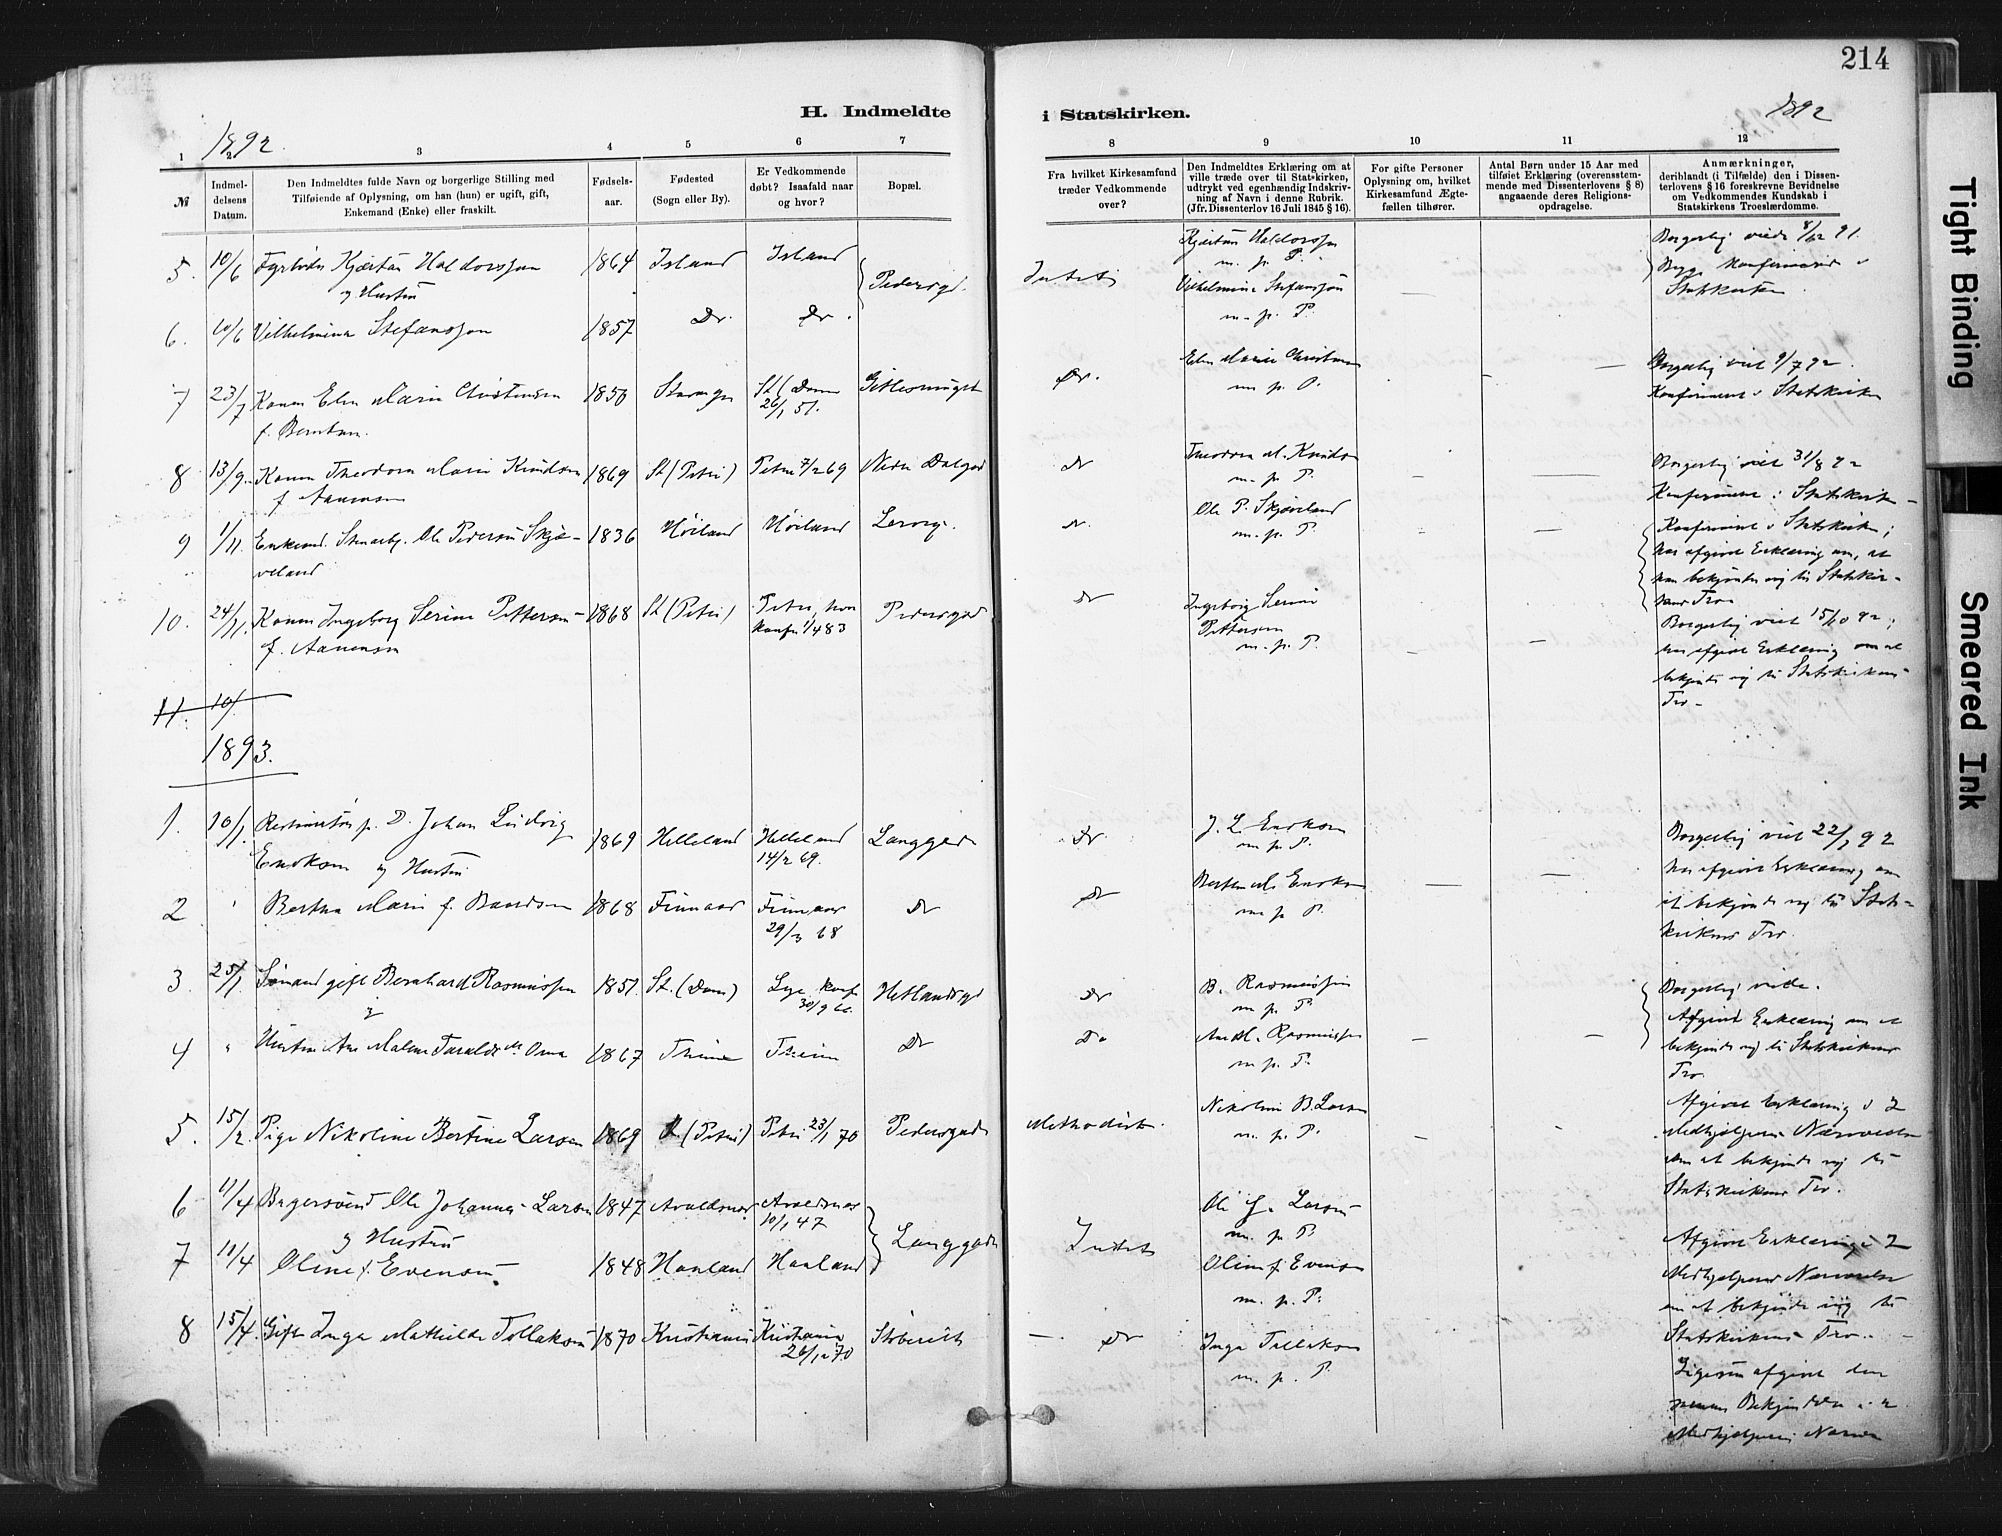 214
H. Indmeldte i Statskirken.
1892.
1892
1
2
3
4
5
6
7
8
9
10
11
12
№
Indmel-
delsens
Datum.
Den Indmeldtes fulde Navn og borgerlige Stilling med
Tilføiende af Oplysning, om han (hun) er ugift, gift,
Enkemand (Enke) eller fraskilt.
Fødsels-
aar.
Fødested
(Sogn eller By).
Er Vedkommende
døbt? Isaafald naar
og hvor?
Bopæl.
Fra hvilket Kirkesamfund
træder Vedkommende
over?
Den Indmeldtes Erklæring om at
ville træde over til Statskirken,
udtrykt ved egenhændig Indskriv-
ning af Navn i denne Rubrik.
(Jfr. Dissenterlov 16 Juli 1845 § 16).
For gifte Personer
Oplysning om, hvilket
Kirkesamfund Ægte-
fællen tilhører.
Antal Børn under 15 Aar med
tilføiet Erklæring (overensstem-
mende med Dissenterlovens § 8)
angaaende deres Religions-
opdragelse.
Anmærkninger,
deriblandt (i Tilfælde) den i Dissen-
terlovens § 16 foreskrevne Bevidnelse
om Vedkommendes Kundskab i
Statskirkens Troeslærdomme.
5. 10/6 Kjartan Haldorsson 1864 Island Island
og Hustru
Pedersgd. Intet
Kjartan Haldorsson
m. p. P.
Borgerlig viede 91.
Konfirmered i
Statskirken
6. 10/6 Vilhelmina Stefansson 1857 Do. Do.
Vilhelmine Stefansson
m. p. P.
7 23/7 Konen Elen Marie Christensen 1850 St (Dom
26/1 51.
f. Berntsen.
Do.
Elen Marie Christensen
m. p. P.
Borgerlig viet 9/7 92.
Konfirmeret i Statskirken
8 13/9. Konen Theodora Marie Knudsen 1869 St (Petri) Petri 7/2 69 Nedre Dalgad
f. Aanensen
Do
Theodora M. Knudsen
m. p. P.
Borgerlig viet 31/8 92
Konfirmeret i Statskirken
9 1/11. Enkemd. Ole Pedersen Skjæ-
veland
1836 Høiland Høiland
Do.
Ole P. Skjæveland
m. p. P.
Konfirmeret i Statskirken;
har afgivet Erklæring om, at
han bekjender sig til Statskir-
kens Tro
10. 24/11. Konen Ingeborg Serine Pettersen 1868 St (Petri) Petri, hvor
konfr. 1/4 83 Pedersgad
f. Aanensen
Do
Ingeborg Serine
Pettersen
m. p. P.
Borgerlig viet 15/10 92;
har afgivet Erklæring om at
bekjende sig til Statskirkens
Tro
11. 10/
1893.
1. 10/1. Johan Ludvig
Eriksen og Hustru
1869 Helleland Helleland
14/2 69. Langgad
Do
J. L. Eriksen
m. p. P.
Borgerlig viet 22/ 92
har afgivet Erklæring om
at bekjende sig til Stats-
kirkens Tro.
2 Bertha Marie f. Baardsen 1868 Finnaas Finnaas
29/3 68 Do
Do
Berthe M. Eriksen
m. p. P.
3 25/1. gift Bernhard Rasmussen 1851. St. (Dom) Lye konf
30/9 66. Hetlandsgd
Do
B. Rasmussen
m. p. P.
Borgerlig viede.
Afgivet Erklæring om at
bekjende sig til Statskirkens
Tro.
4 Hustru Ane Malene Taraldsdr Oma 1867 Thime Thime Do
Do
Rasmussen
m. p. P.
5. 15/2. Pige Nikoline Bertine Larsen 1869 St (Petri) Petri 23/1 70 Pedersgad
Methodist.
Nikoline B. Larsen
m. p. P.
Afgivet Erklæring i 2
Medhjælperes Nærværelse
om at bekjende sig til
Statskirkens Tro.
6 11/4 Bagersvend Ole Johannes Larsen 1847 Avaldsnes Avaldsnes
10/1 47
og Hustru
Langgade
Intet
Ole J. Larsen
m. p. P
7 11/4 Oline f. Evensen 1848 Haaland Haaland
Oline f. Evensen
m. p. P.
Afgivet Erklæring i 2
Medhjælperes Nærværelse
om at bekjende sig til
Statskirkens Tro.
8 15/4. Gift Inga Mathilde Tollaksen 1870 Kristiania Kristiania
26/12 70
Do
Inga Tollaksen
m. p. P.
Ligesom afgivet den
samme Bekjendelse i 2
Medhjælperes Nærvær
Tight Binding
Smeared Ink